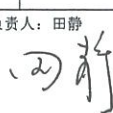 负责人：田静
田静